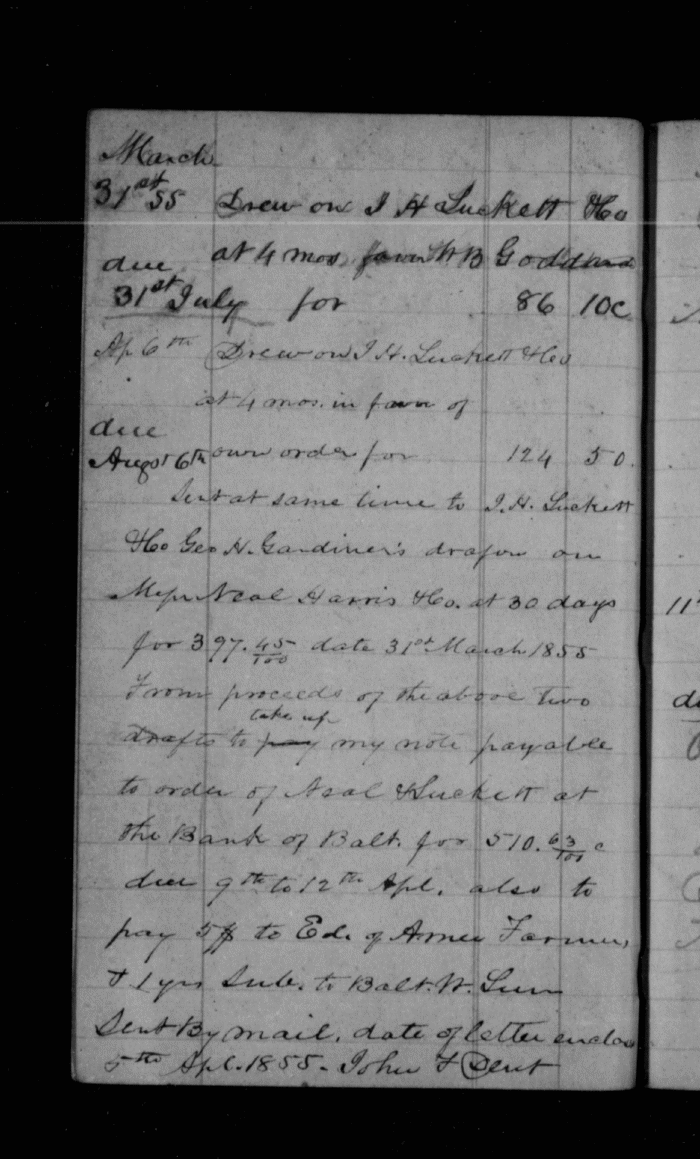 March
31st 55 Drew on I H Luckett & Co
due at 4 mos favor W B Goddard
31st July for 86 10c
Ap 6th Drew on I. H. Luckett & Co
at 4 mos. in favor of
due
Augst 6th own order for 124 50.
Sent at same time to I. H. Luckett
& Co Geo H. Gardiner's on
Neal Harris & Co. at 30 days
for 397. 45/100 date 31st March 1855
From proceeds of the above two
take up
drafts to pay my note payable
to order of Neal & Luckett at
the Bank of Balt. for 510. 63/100 c
due 9th to 12th Apl. also to
pay to Ed. of Amer Farmer,
& 1 yrs Sub. to Balt. W. Sun
Sent By mail. date of letter
5th Apl. 1855. John F Dent